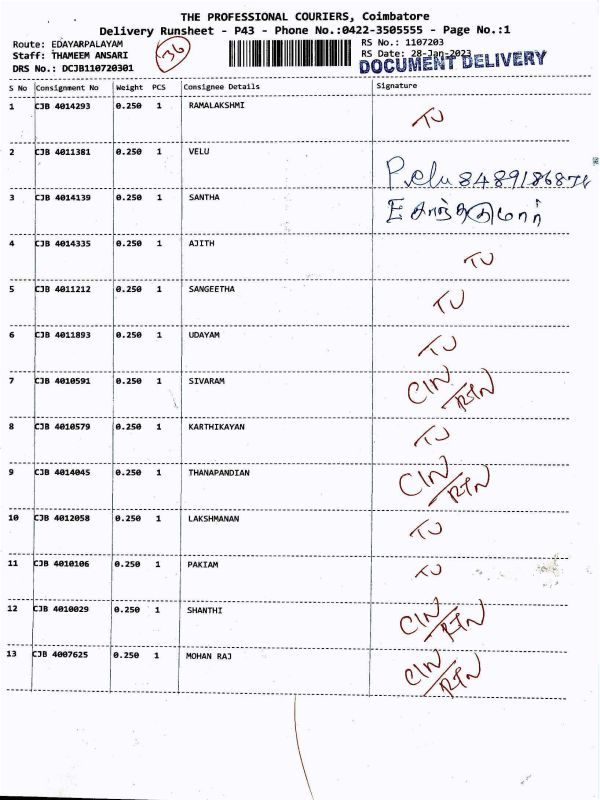 THE PROFESSIONAL COURIERS, Coimbatore
Delivery Runsheet - P43 - Phone No.:0422-3505555 - Page No.:1
Route: EDAYARPALAYAM 36 RS No.: 1107203
Staff: THAMEEM ANSARI RS Date: 28-Jan-2023
DRS No.: DCJB110720301 DOCUMENT DELIVERY
S No Consignment No Weight PCS Consignee Details Signature
1 CJB 4014293 0.250 1 RAMALAKSHMI TU
2 CJB 4011381 0.250 1 VELU P.velu
3 CJB 4014139 0.250 1 SANTHA E
4 CJB 4014335 0.250 1 AJITH TU
5 CJB 4011212 0.250 1 SANGEETHA TU
6 CJB 4011893 0.250 1 UDAYAM TU
7 CJB 4010591 0.250 1 SIVARAM CIN/RTN
8 CJB 4010579 0.250 1 KARTHIKAYAN TU
9 CJB 4014045 0.250 1 THANAPANDIAN CIN/RTN
10 CJB 4012058 0.250 1 LAKSHMANAN TU
11 CJB 4010106 0.250 1 PAKIAM TU
12 CJB 4010029 0.250 1 SHANTHI CIN/RTN
13 CJB 4007625 0.250 1 MOHAN RAJ CIN/RTN